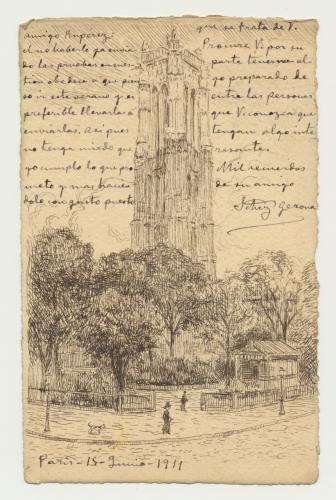 amigo Ampérez:
el no haberle ya envia
do las pruebas en cues
tion obedece a que pien
so ir este verano y es
preferible llevarlas a
enviarlas. Asi pues
no tenga miedo que
yo cumplo lo que pro
meto y mas hacien
dolo con gusto puesto
que se trata de V.
Procure V. por su
parte tenerme al
go preparado de
entre las personas
que V. conozca que
tengan algo inte
resantes.
Mil recuerdos
de su amigo
Schez Gerona
París - 15 - Junio - 1911